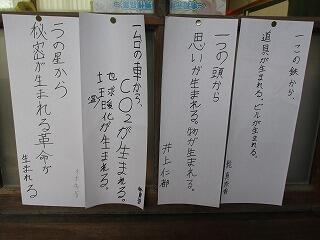 一この鉄から、
道具が生まれる、ビルが生まれる。
一つの頭から
思いが生まれる。物が生まれる。
井上仁都
一台の車から、
CO2が生まれる。
地球温暖化が生まれる。
一つの星から
秘密が生まれる革命が
生まれる